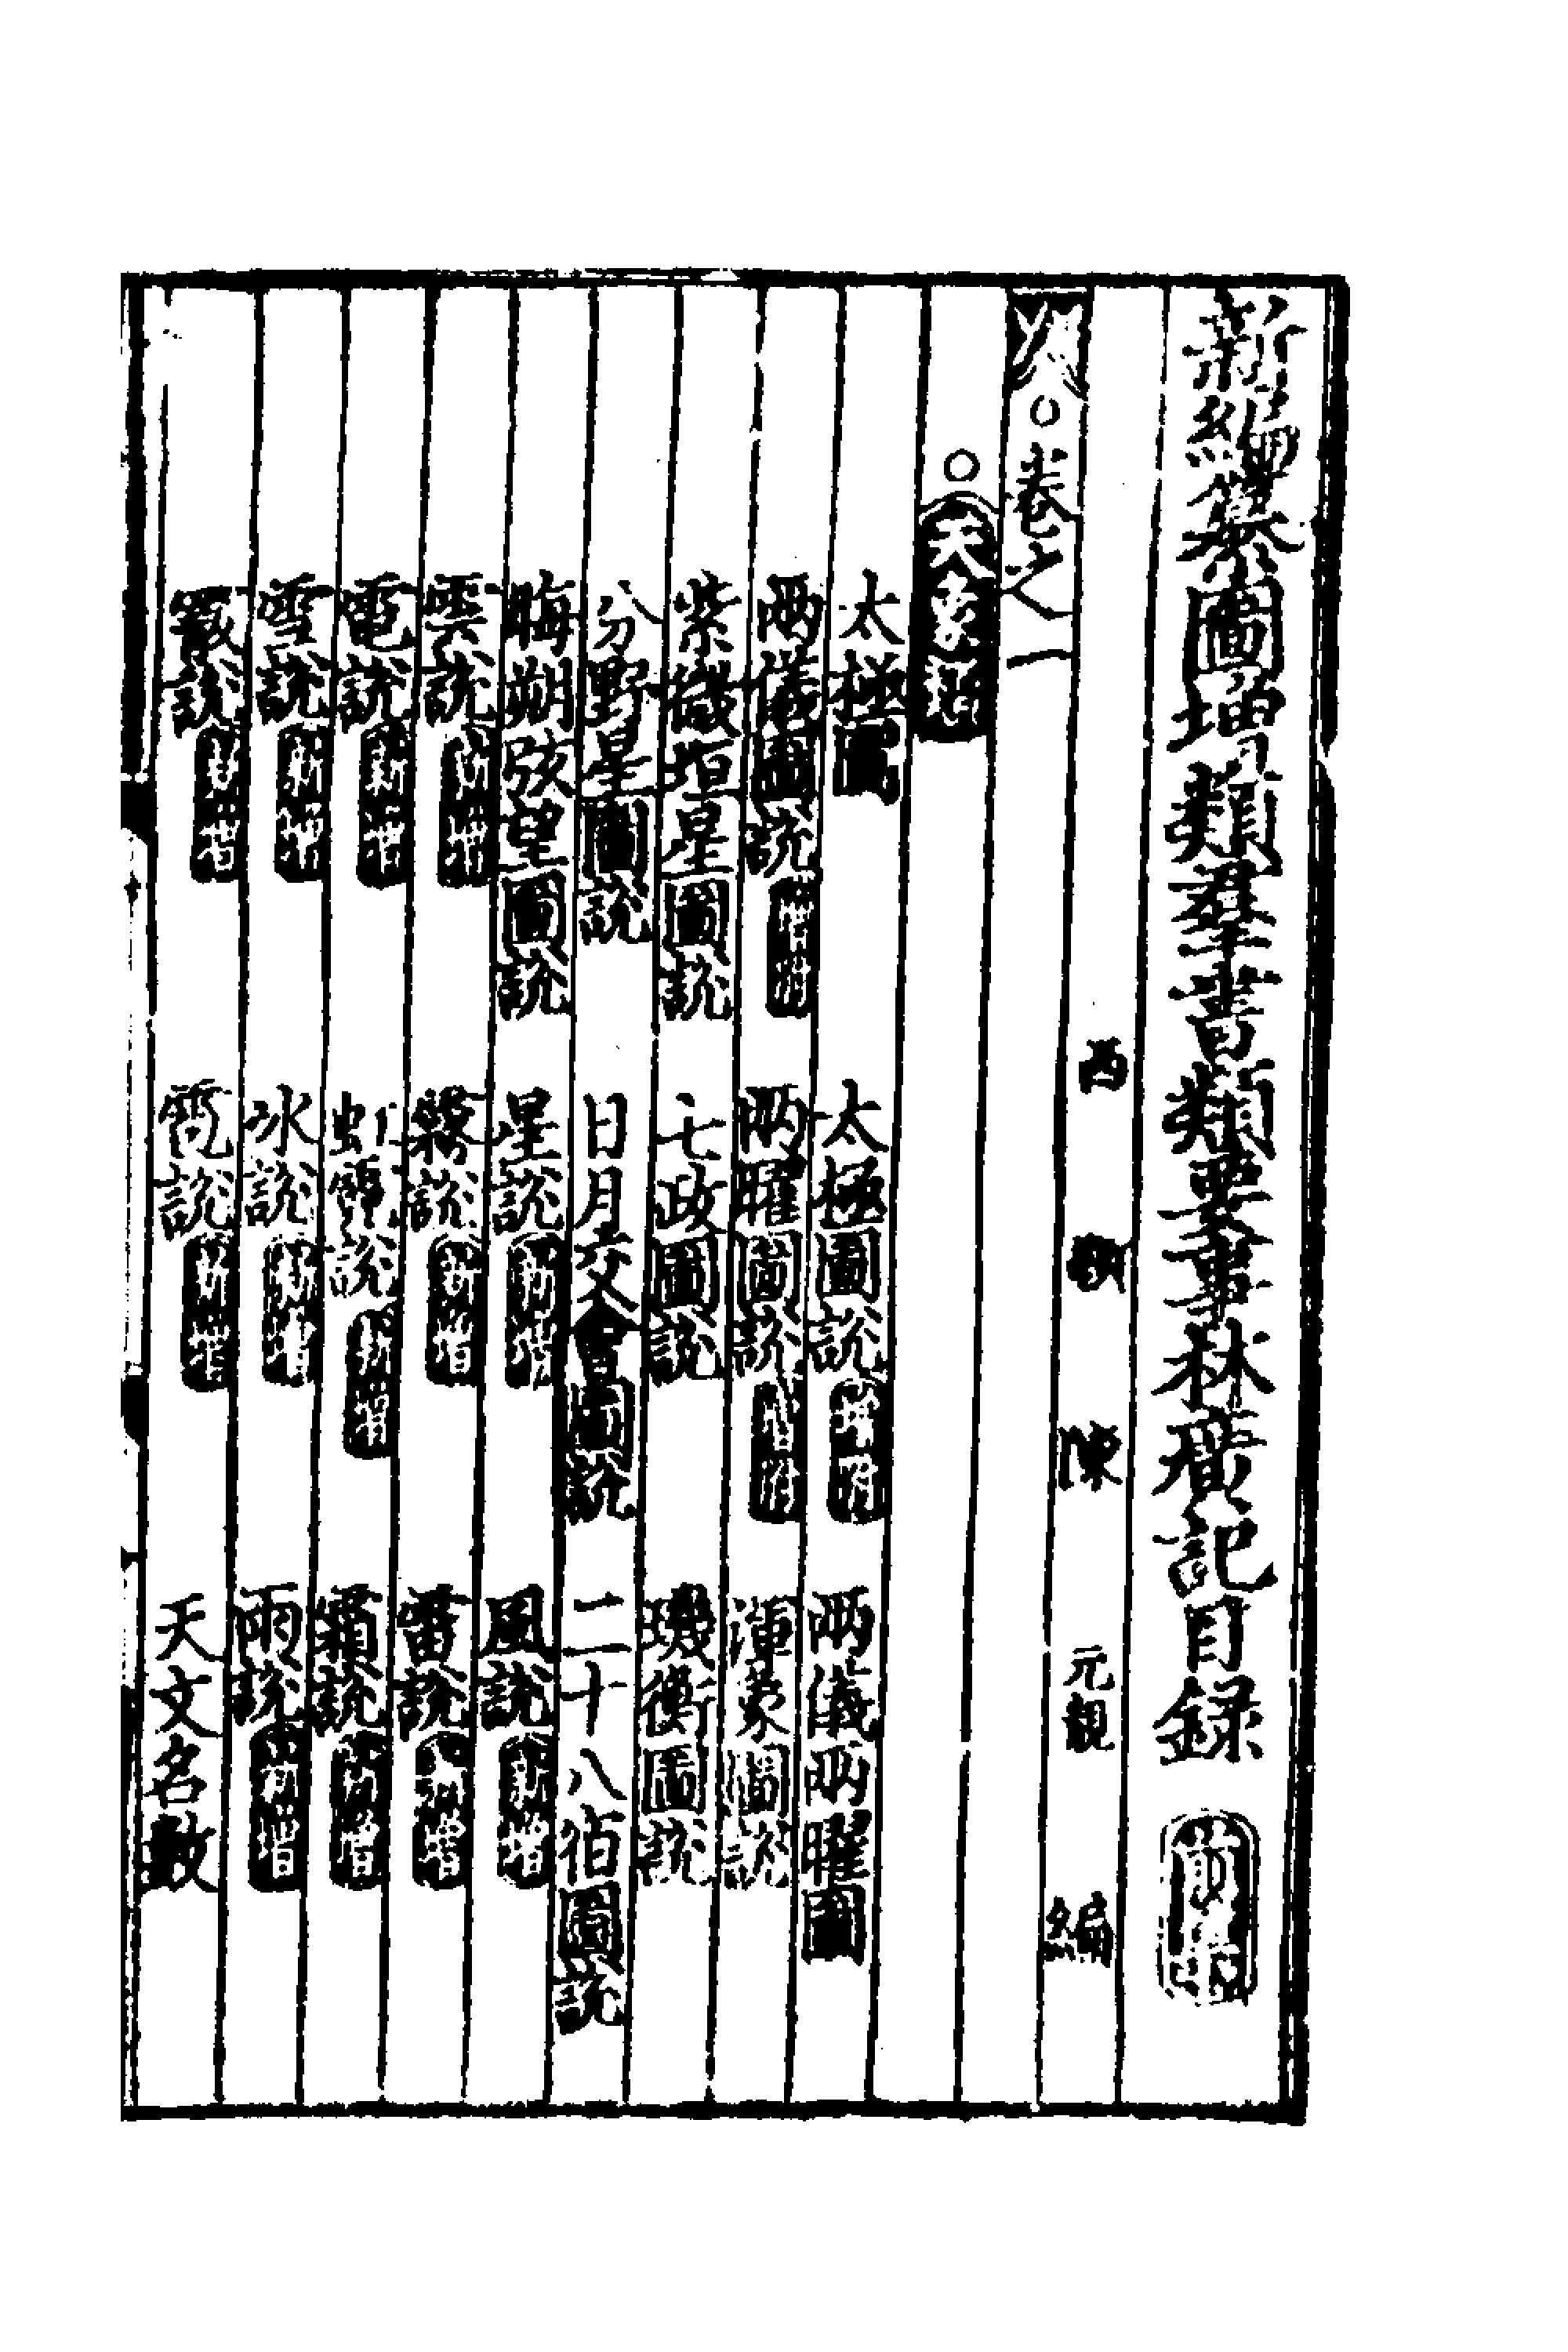 新編纂圖增類羣書類要事林廣記目録 前集
西 潁 陳 元靚 編
○卷之一
○天象類
太極圖 太極圖説增附 兩儀兩曜圖
兩儀圖説增附 兩曜圖説增附 渾象圖説
紫微垣星圖説 七政圖説 璣衡圖説
分野星圖説 日月交會圖説 二十八宿圖説
晦朔弦望圖説 星説新增 風説新增
雲説新增 霧説新增 雷説新增
電説新增 虹霓説新增 霜説新增
雪説新增 冰説新增 雨説新增
霰説新增 雹説新增 天文名數